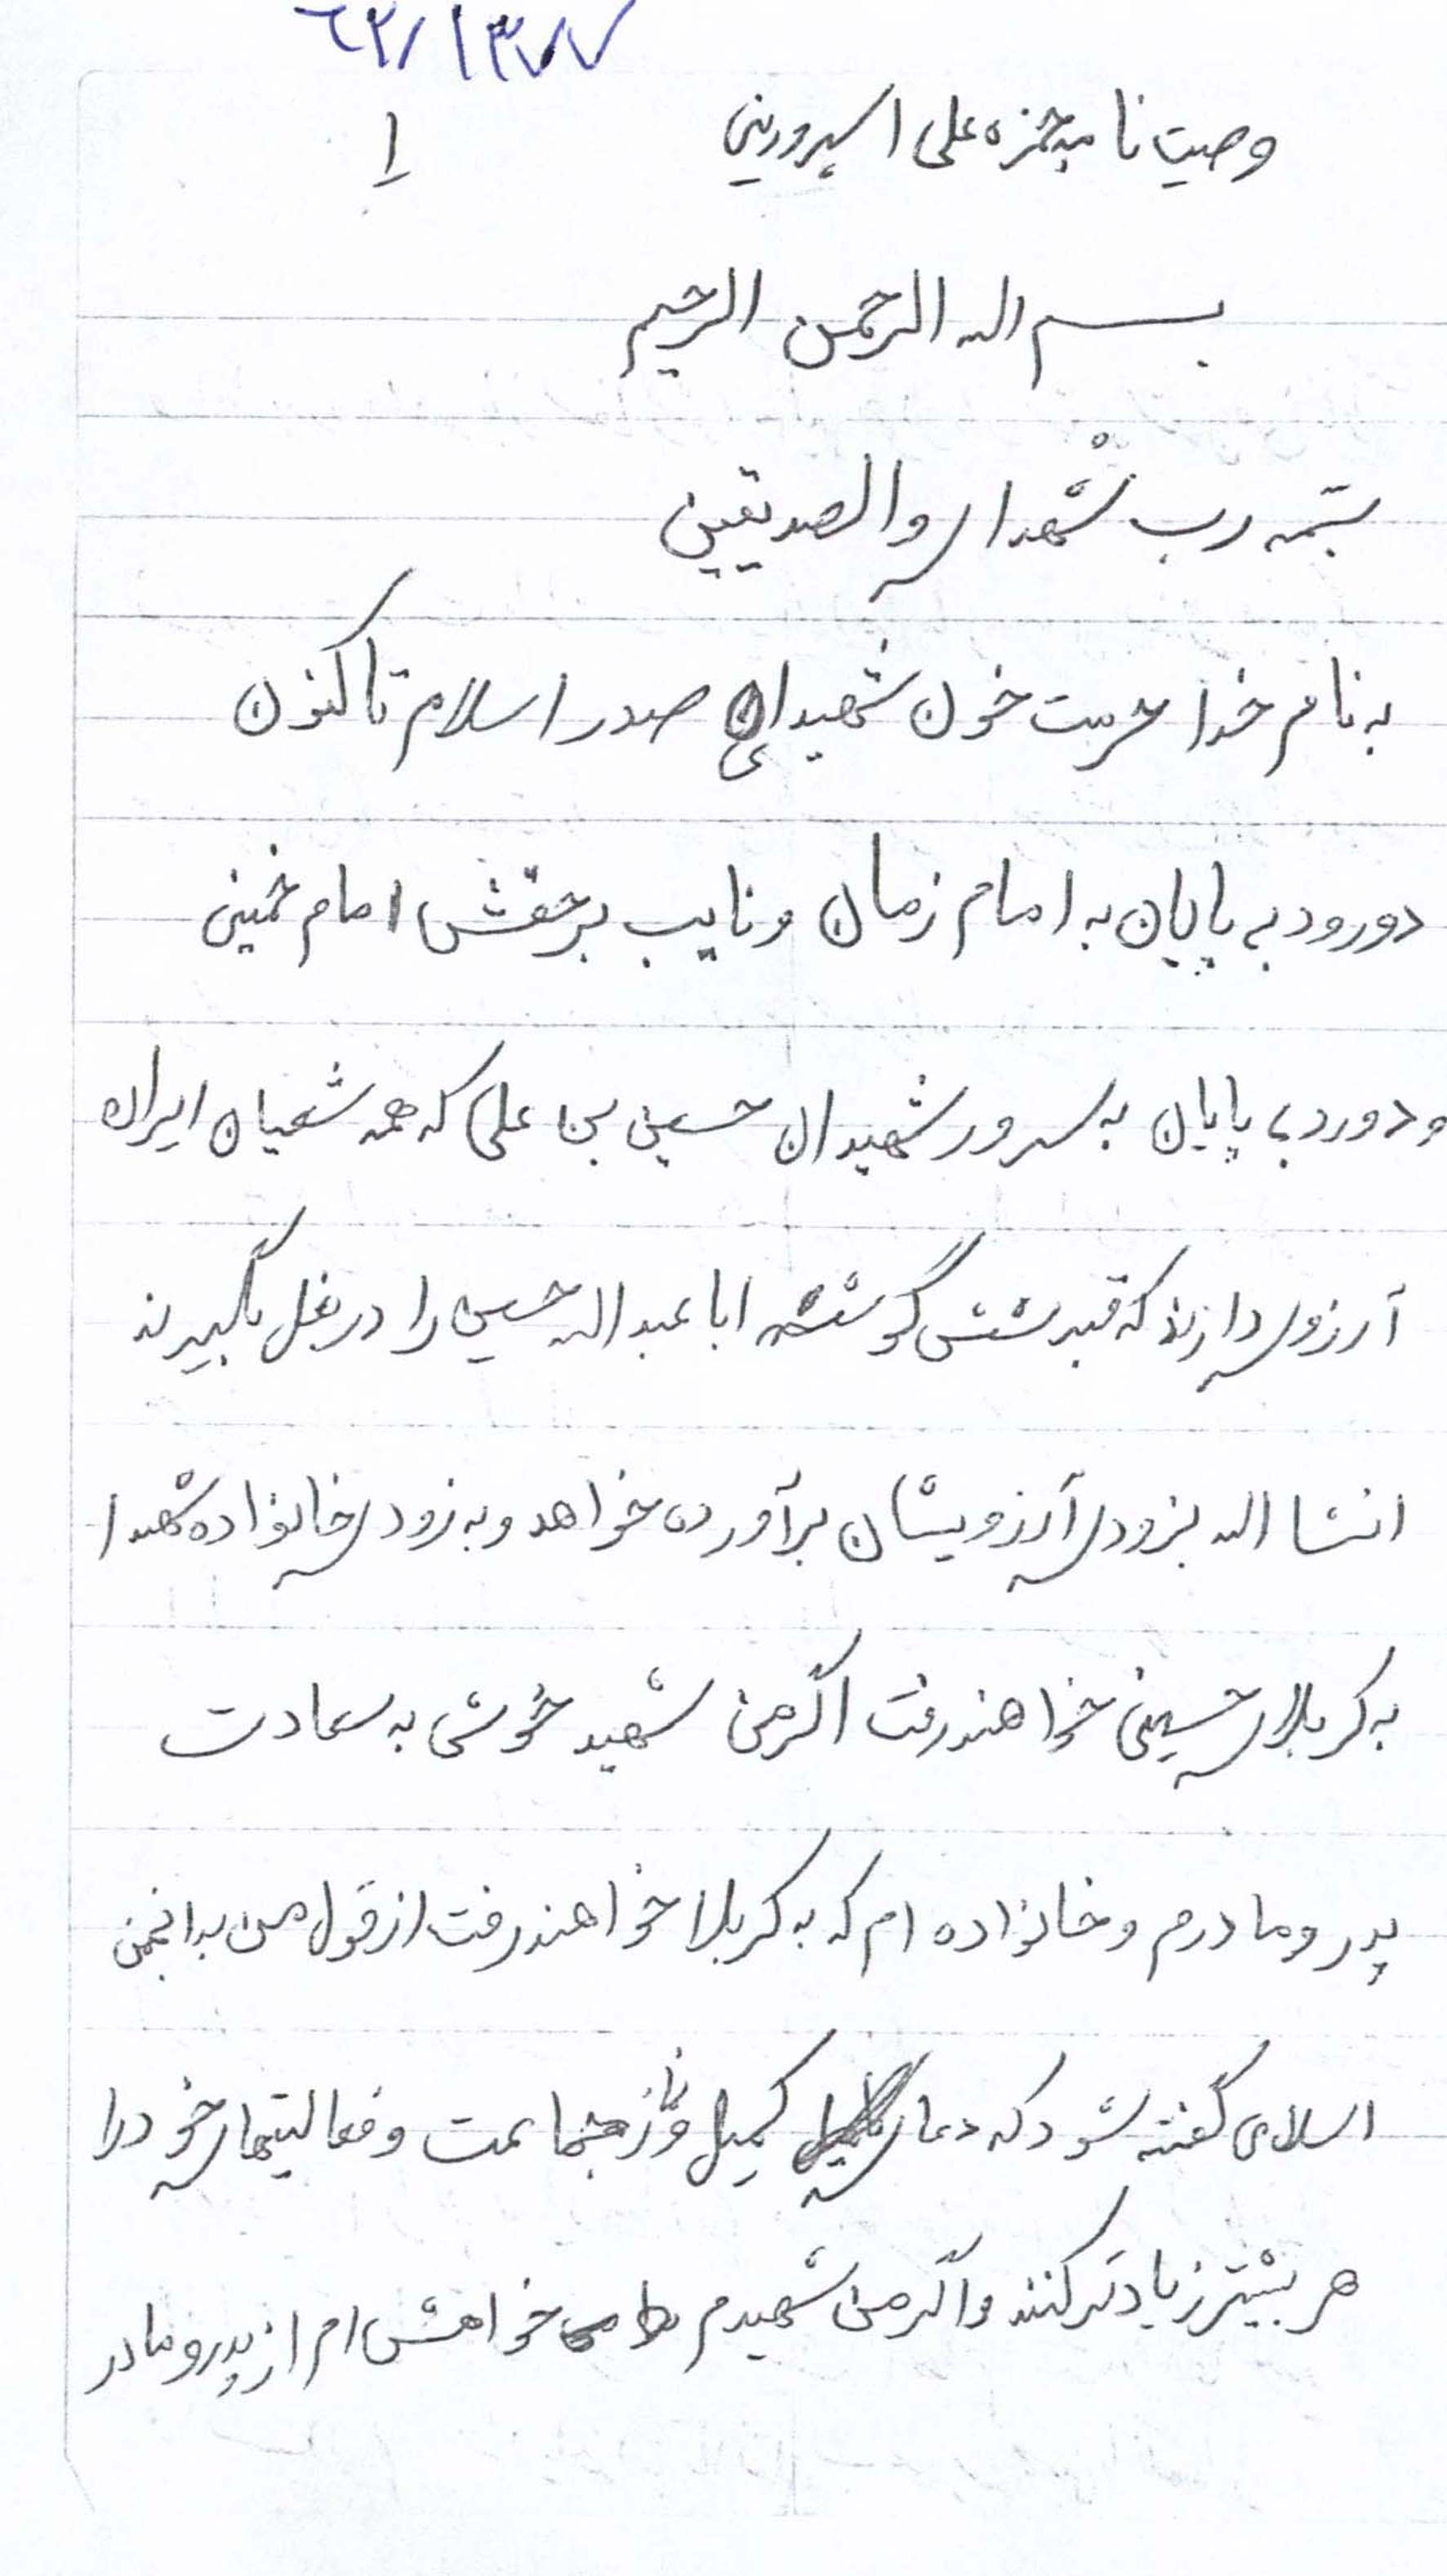 ٦٢/١٣٧٧
وصیت نامه حمزه علی اسپرورینی
١
بسم اله الرحمن الرحیم
بسمه رب شهدای والصدیقین
به نام خدا حرمت خون شهیدان صدر اسلام تا کنون
دورود بی پایان به امام زمان و نایب برحقش امام خمینی
و دورد بی پایان به سرور شهیدان حسین بن علی که همه شعیان ایران
آرزوی دارند که قبر شش گوشه ابا عبداله حسین را در بغل بگیرند
انشا اله بزودی آرزویشان برآورده خواهد و به زودی خانواده شهدا
به کربلای حسینی خواهند رفت اگر من شهید خوشی به سعادت
پدر و مادرم و خانواده ام که به کربلا خواهند رفت از قول من به انجمن
اسلامی گفته شود که دعای کمیل و نماز جماعت و فعالیتهای خود را
هر بیشتر زیادتر کنند و اگر من شهیدم خواهش ام از پدر و مادر